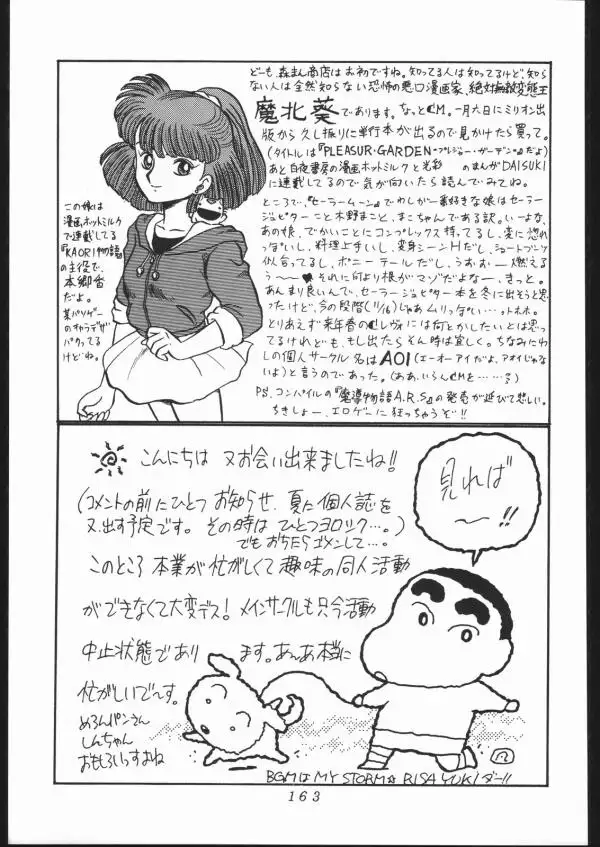 どーも、森まん商店はお初ですね。知ってる人は知ってるけど、知ら
ない人は全然知らない恐怖の悪口漫画家、絶対無敵変態王
魔北葵であります。なっとCM。一月六日にミリオン出
版から久し振りに単行本が出るので見かけたら買って。
(タイトルは『PLEASUR・GARDEN-プレジャー・ガーデン-』だよ)
あと白夜書房の漫画ホットミルクと光彩 のまんがDAISUKI
に連載してるので気が向いたら読んでみてね。
ところで、『セーラームーン』でわしが一番好きな娘はセーラー
ジュピターこと木野まこと、まこちゃんである訳。いーよな、
あの娘、でかいことにコンプレックス持ってるし、変に惚れ
っぽいし、料理上手いし、変身シーンHだし、ショートブーツ
似合ってるし、ポニーテールだし、うおぉー燃えるぅ
〜❤それに何より根がマゾだよなー、きっと。
あんまり良いんで、セーラージュピター本を冬に出そうと思
ったけど、今の段階(11/16)じゃあムリっぽい…ホホホ。
とりあえず来年春のCレヴィには何とかしたいとは思っ
てるけれども、もし出たらそん時は宜しく。ちなみにわ
しの個人サークル名はAOI(エーオーアイだよ、アオイじゃな
いよ)と言うのであった。(ああ、いろんなCMを……?)
P.S. コンパイルの『魔導物語A.R.S』の発売が延びて悲しい。
ちきしょー、エロゲーに狂っちゃうぞ!!
この娘は
漫画ホットミルク
で連載してる
『KAORI物語』
の主役で、
本郷香
だよ。
某バソゲー
のキャラデザ
パクってる
けどね。
こんにちは 又お会い出来ましたね!!
(コメントの前にひとつお知らせ、夏に個人誌を
又、出す予定です。その時はひとつヨロシク…。)
でもおちたらゴメンして…。
このところ本業が忙がしくて趣味の同人活動
ができなくて大変デス! メインサークルも只今活動
中止状態であり ます。あんあ本当に
忙がしいで〜す。
めろんパンさん
しんちゃん
おもろいっすよね
見れば
〜!!
BGMはMY STORM☆RISA YUKIダー!!
163